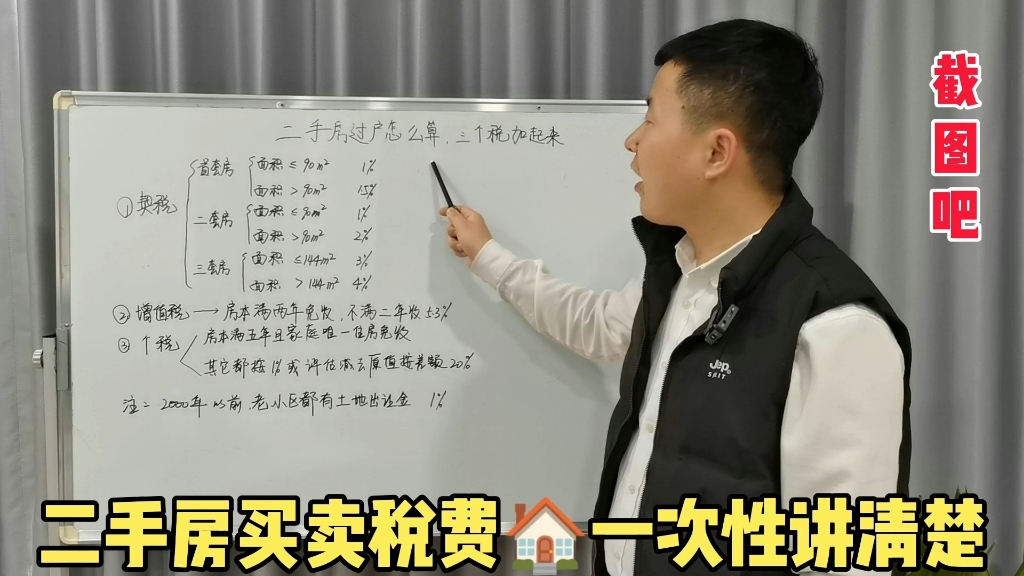 二手房过户怎么算，三个税加起来
①契税
首套房 面积≤90m² 1%
面积>90m² 1.5%
二套房 面积≤90m² 1%
面积>90m² 2%
三套房 面积≤144m² 3%
面积>144m² 4%
②增值税→房本满两年免收，不满二年收5.3%
③个税 房本满五年且家庭唯一住房免收
其它都按1%或评估减去原值按差额20%
注：2000年以前，老小区都有土地出让金 1%
截图吧
Jep
SPIT
二手房买卖税费🏠一次性讲清楚